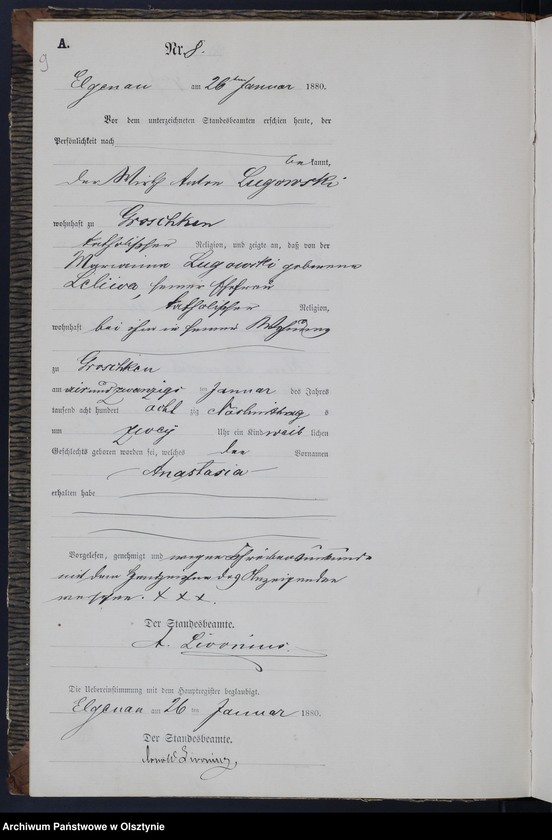 A.
Nr. 8.
9
Elgenau am 26ten Januar 1880.
Vor dem unterzeichneten Standesbeamten erschien heute, der
Persönlichkeit nach
be kannt,
der Wirth Anton Lugowski
wohnhaft zu Groschken
katholischer Religion, und zeigte an, daß von der
Marianna Lugowski geborene
Leliwa, seiner Ehefrau
katholischer Religion,
wohnhaft bei ihm in seiner Wohnung
zu Groschken
am ein und zwanzigs ten Januar des Jahres
tausend acht hundert acht zig Nachmittag s
um zwey Uhr ein Kind weib lichen
Geschlechts geboren worden sei, welches den Vornamen
Anastasia
erhalten habe
Vorgelesen, genehmigt und wegen Schreibensunkunde
mit dem Handzeichen des Anzeigenden
versehen. X X X.
Der Standesbeamte.
A.
Die Uebereinstimmung mit dem Hauptregister beglaubigt.
Elgenau am 26 ten Januar 1880.
Der Standesbeamte.
Arnold
Archiwum Państwowe w Olsztynie